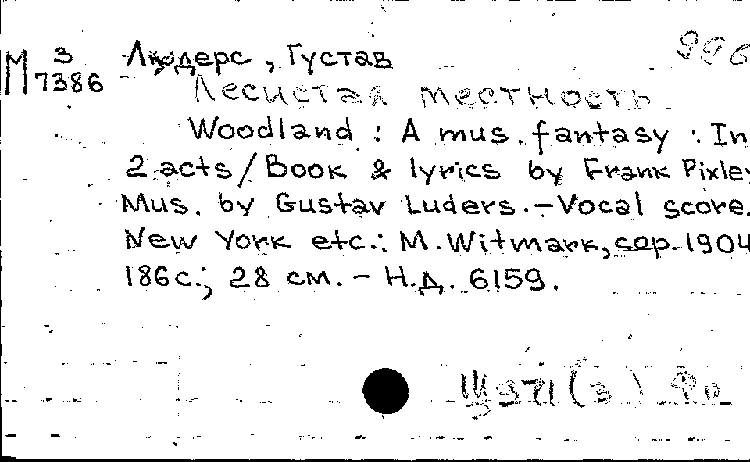 996
М 3 Людерс, Густав
7386
Лесистая местность.
Woodland : A mus. fantasy : In
2 acts / Book & lyrics by Frank Pixley
Mus. by Gustav Luders. – Vocal score.
New York etc.: M. Witmark, cop. 1904
186 с.; 28 см. – Н.д. 6159.